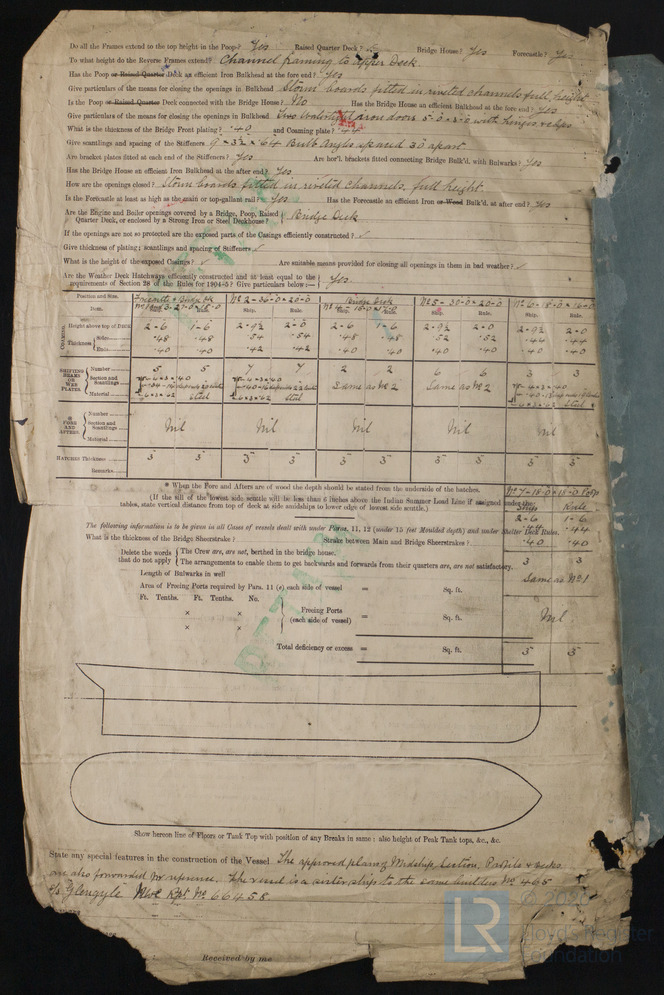 Do all the Frames extend to the top height in the Poop? Yes Raised Quarter Deck? Bridge House? Yes Forecastle? Yes
To what height do the Reverse Frames extend? Channel framing to upper Deck
Has the Poop or Raised Quarter Deck an efficient Iron Bulkhead at the fore end? Yes
Give particulars of the means for closing the openings in Bulkhead Storm boards fitted in riveted channels full height
Is the Poop or Raised Quarter Deck connected with the Bridge House? No Has the Bridge House an efficient Bulkhead at the fore end? Yes
Give particulars of the means for closing the openings in Bulkhead Two iron doors 5-0 x 3-0 with hinges & clips
What is the thickness of the Bridge Front plating? .40 and Coaming plate? .44
Give scantlings and spacing of the Stiffeners 9 x 3½ x 64 Bulb Angles spaced 30 apart
Are bracket plates fitted at each end of the Stiffeners? Yes Are hor'l. brackets fitted connecting Bridge Bulk'd. with Bulwarks? Yes
Has the Bridge House an efficient Iron Bulkhead at the after end? Yes
How are the openings closed? Storm boards fitted in riveted channels, full height.
Is the Forecastle at least as high as the main or top-gallant rail? Yes Has the Forecastle an efficient Iron or Wood Bulk'd. at after end? Yes
Are the Engine and Boiler openings covered by a Bridge, Poop, Raised
Quarter Deck, or enclosed by a Strong Iron or Steel Deckhouse? Bridge Deck
If the openings are not so protected are the exposed parts of the Casings efficiently constructed? ✓
Give thickness of plating; scantlings and spacing of Stiffeners ✓
What is the height of the exposed Casings? ✓ Are suitable means provided for closing all openings in them in bad weather? ✓
Are the Weather Deck Hatchways efficiently constructed and at least equal to the
requirements of Section 28 of the Rules for 1904-5? Give particulars below:— Yes
Position and Size. Bridge Dk No 2 - 36-0 x 20-0 Bridge Deck No 5 - 30-0 x 20-0 No 6 - 18-0 x 16-0
Item. Ship. Rule. Ship. Rule. Ship. Rule. Ship. Rule.
COAMING. Height above top of Deck 2-6 1-6 2-9½ 2-0 2-6 1-6 2-9½ 2-0 2-9½ 2-0
Thickness Sides .48 .48 .54 .54 .48 .48 .52 .52 .44 .44
Ends .40 .40 .42 .42 .40 .40 .40 .40 .40 .40
SHIFTING BEAMS OR WEB PLATES. Number 5 5 7 7 2 2 6 6 3 3
Section and Scantlings Same as No 2 Same as No 2
Material Steel Steel Steel
* FORE AND AFTERS. Number
Section and Scantlings Nil Nil Nil Nil Nil
Material
HATCHES Thickness 3 3 3 3 3 3 3 3 3 3
Remarks.
* When the Fore and Afters are of wood the depth should be stated from the underside of the hatches.
No 7 - 18-0 x 18-0 Poop
(If the sill of the lowest side scuttle will be less than 6 inches above the Indian Summer Load Line if assigned under the
tables, state vertical distance from top of deck at side amidships to lower edge of lowest side scuttle.)
Ship Rule
2-6 1-6
The following information is to be given in all Cases of vessels dealt with under Paras. 11, 12 (under 15 feet Moulded depth) and under Shelter Deck Rules.
.44 .44
What is the thickness of the Bridge Sheerstrake? Strake between Main and Bridge Sheerstrakes?
.40 .40
Delete the words that do not apply The Crew are, are not, berthed in the bridge house.
The arrangements to enable them to get backwards and forwards from their quarters are, are not satisfactory.
3 3
Length of Bulwarks in well
Same as No 1
Area of Freeing Ports required by Para. 11 (e) each side of vessel = Sq. ft.
Ft. Tenths. Ft. Tenths. No.
× ×
Freeing Ports (each side of vessel) = Sq. ft.
Nil
× ×
Total deficiency or excess = Sq. ft.
3 3
Show hereon line of Floors or Tank Top with position of any Breaks in same: also height of Peak Tank tops, &c., &c.
State any special features in the construction of the Vessel. The approved plans of Midship Section, Profile & decks
are also forwarded for reference. The vessel is a sister ship to the same builders No 465
Glengyle Nwc Rpt No 66458
Received by me
LR
© 2020
Lloyd's Register
Foundation